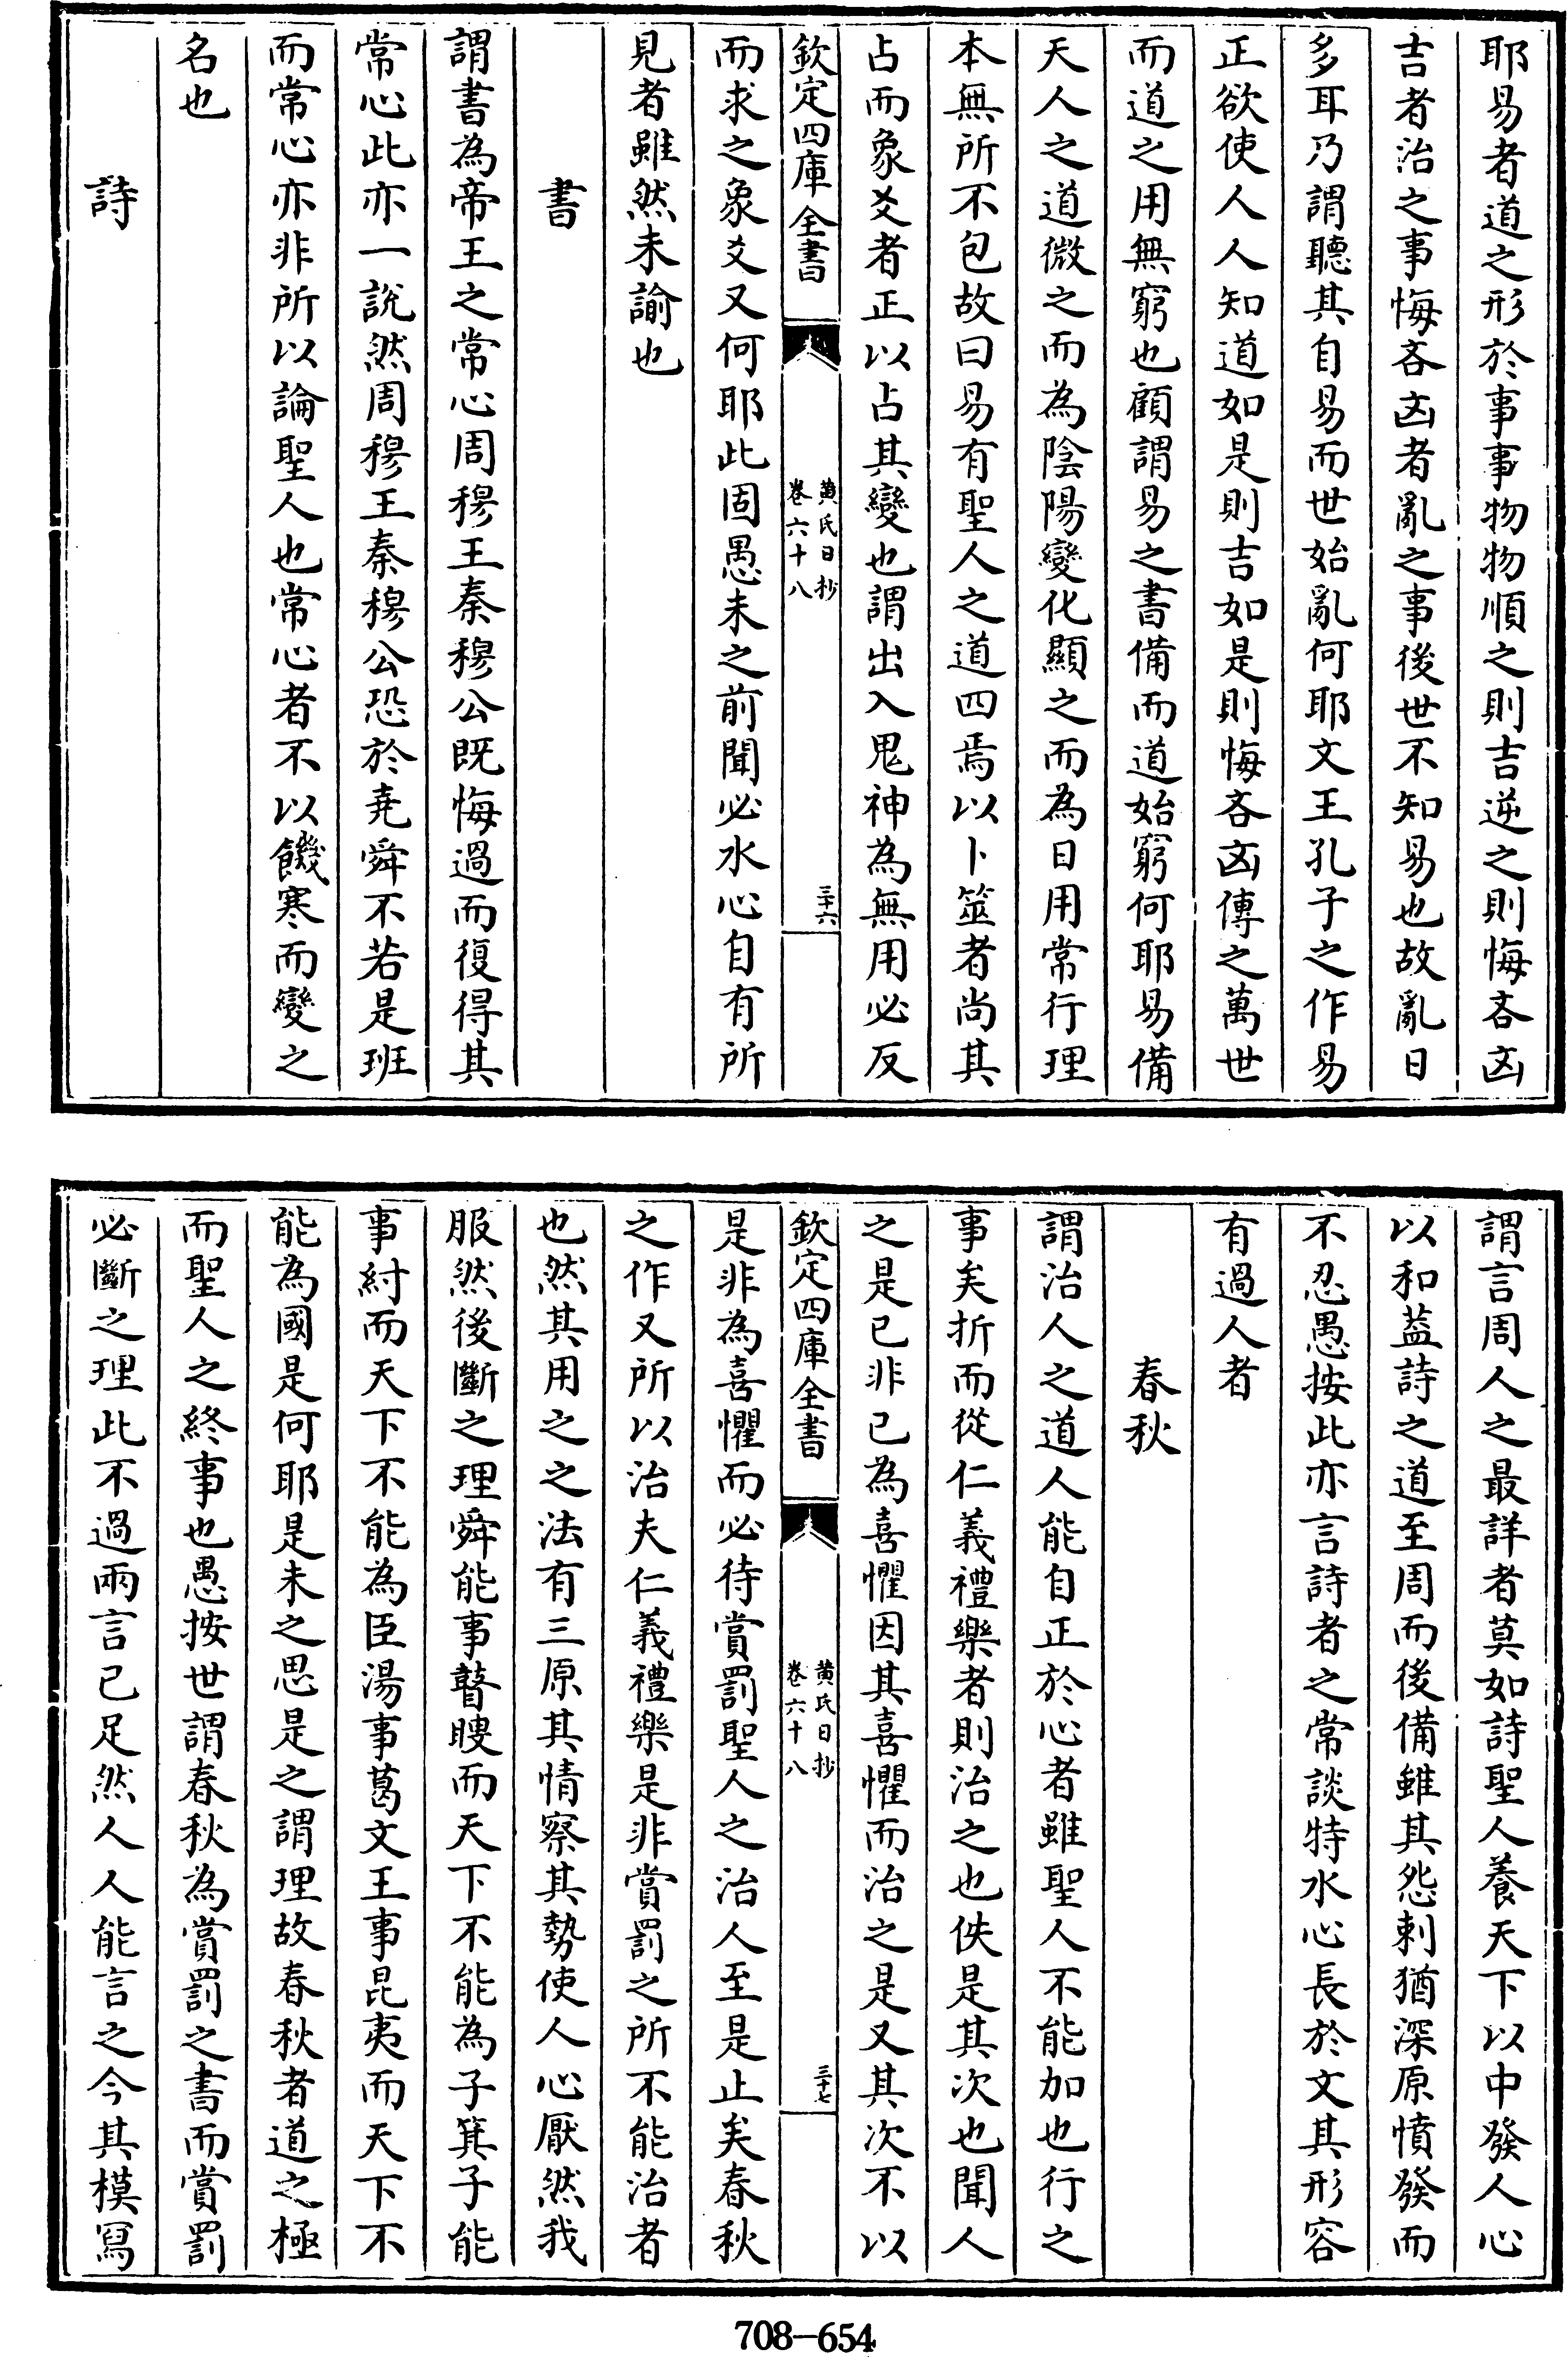 耶易者道之形於事事物物順之則吉逆之則悔吝凶
吉者治之事悔吝凶者亂之事後世不知易也故亂日
多耳乃謂聽其自易而世始亂何耶文王孔子之作易
正欲使人人知道如是則吉如是則悔吝凶傳之萬世
而道之用無窮也顧謂易之書備而道始窮何耶易備
天人之道微之而為陰陽變化顯之而為日用常行理
本無所不包故曰易有聖人之道四焉以卜筮者尚其
占而象爻者正以占其變也謂出入鬼神為無用必反
欽定四庫全書
黄氏日抄
卷六十八
三十六
而求之象爻又何耶此固愚未之前聞必水心自有所
見者雖然未諭也
書
謂書為帝王之常心周穆王秦穆公既悔過而復得其
常心此亦一說然周穆王秦穆公恐於堯舜不若是班
而常心亦非所以論聖人也常心者不以饑寒而變之
名也
詩
謂言周人之最詳者莫如詩聖人養天下以中發人心
以和葢詩之道至周而後備雖其怨刺猶深原憤發而
不忍愚按此亦言詩者之常談特水心長於文其形容
有過人者
春秋
謂治人之道人能自正於心者雖聖人不能加也行之
事矣折而從仁義禮樂者則治之也佚是其次也聞人
之是已非已為喜懼因其喜懼而治之是又其次不以
欽定四庫全書
黄氏日抄
卷六十八
三十七
是非為喜懼而必待賞罰聖人之治人至是止矣春秋
之作又所以治夫仁義禮樂是非賞罰之所不能治者
也然其用之之法有三原其情察其勢使人心厭然我
服然後斷之理舜能事瞽瞍而天下不能為子箕子能
事紂而天下不能為臣湯事葛文王事昆夷而天下不
能為國是何耶是未之思是之謂理故春秋者道之極
而聖人之終事也愚按世謂春秋為賞罰之書而賞罰
必斷之理此不過兩言已足然人人能言之今其模寫
708-654